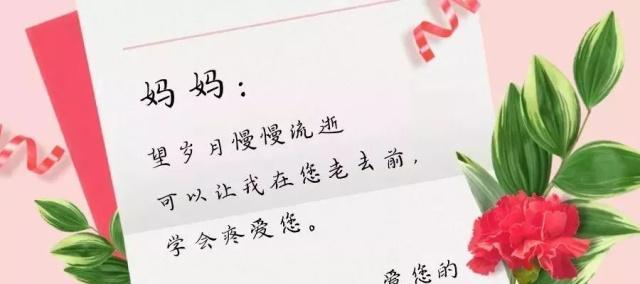 妈妈：
望岁月慢慢流逝
可以让我在您老去前，
学会疼爱您。
爱您的